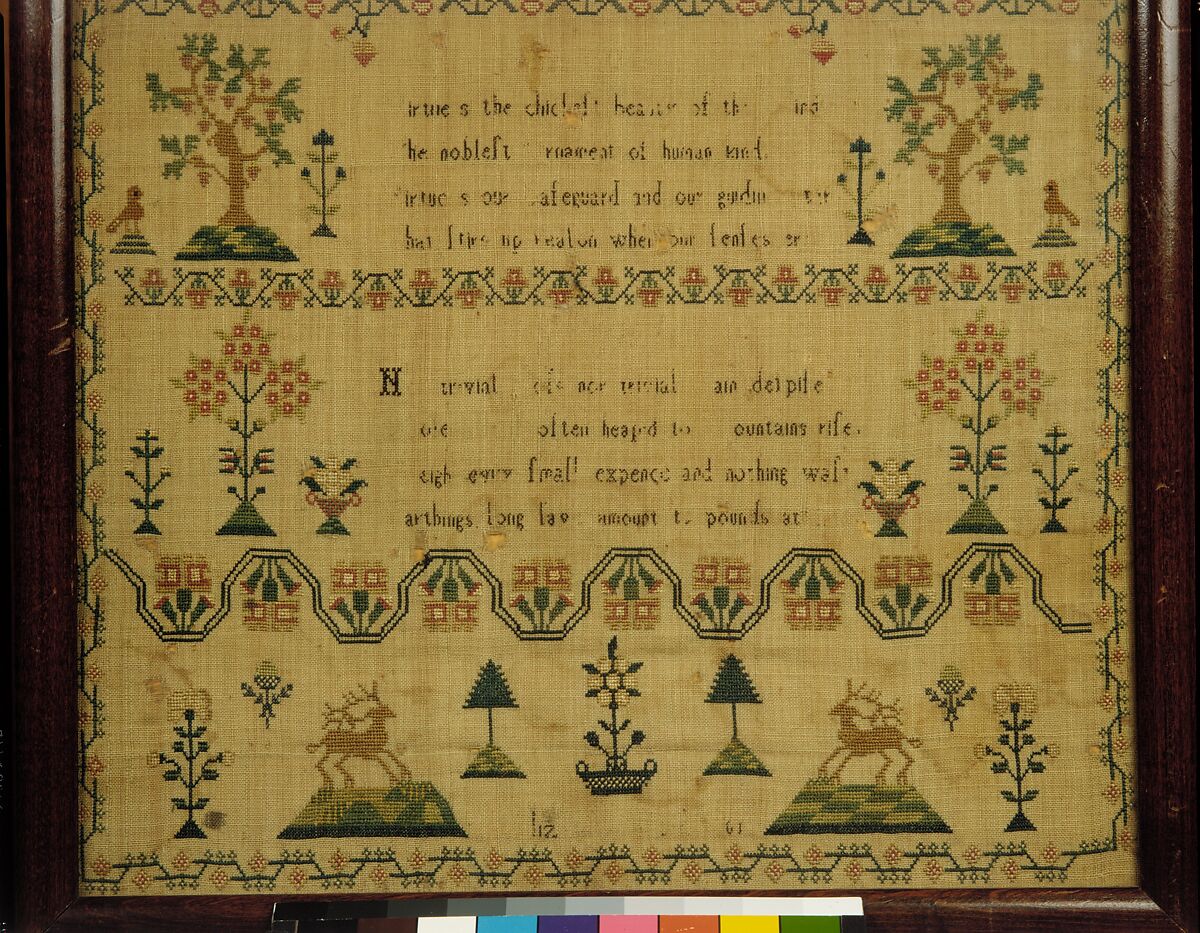 irtue s the chiefeſt beauty of th ind
he nobleſt rnament of human kind
irtue s our afeguard and our guidin tar
hat ſtirs up reaſon when our ſenſes er
N trivial loſs nor trivial ain deſpiſe
ole often heaped to ountains riſe.
eigh every ſmall expence and nothing waſt
arthings long ſav amount to pounds at
liz 61